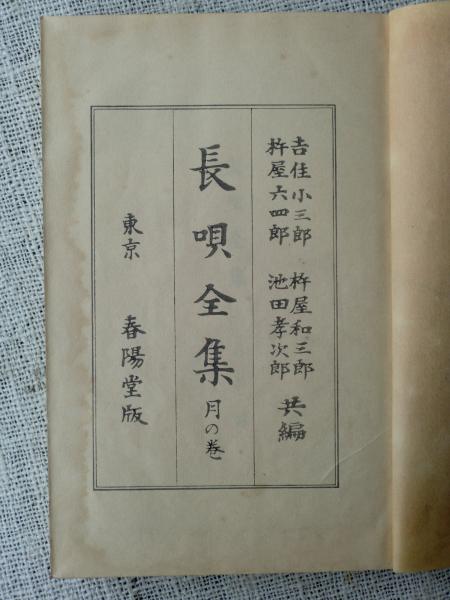 吉住小三郎 杵屋和三郎
杵屋六四郎 池田孝次郎
共編
長唄全集 月の巻
東京 春陽堂版